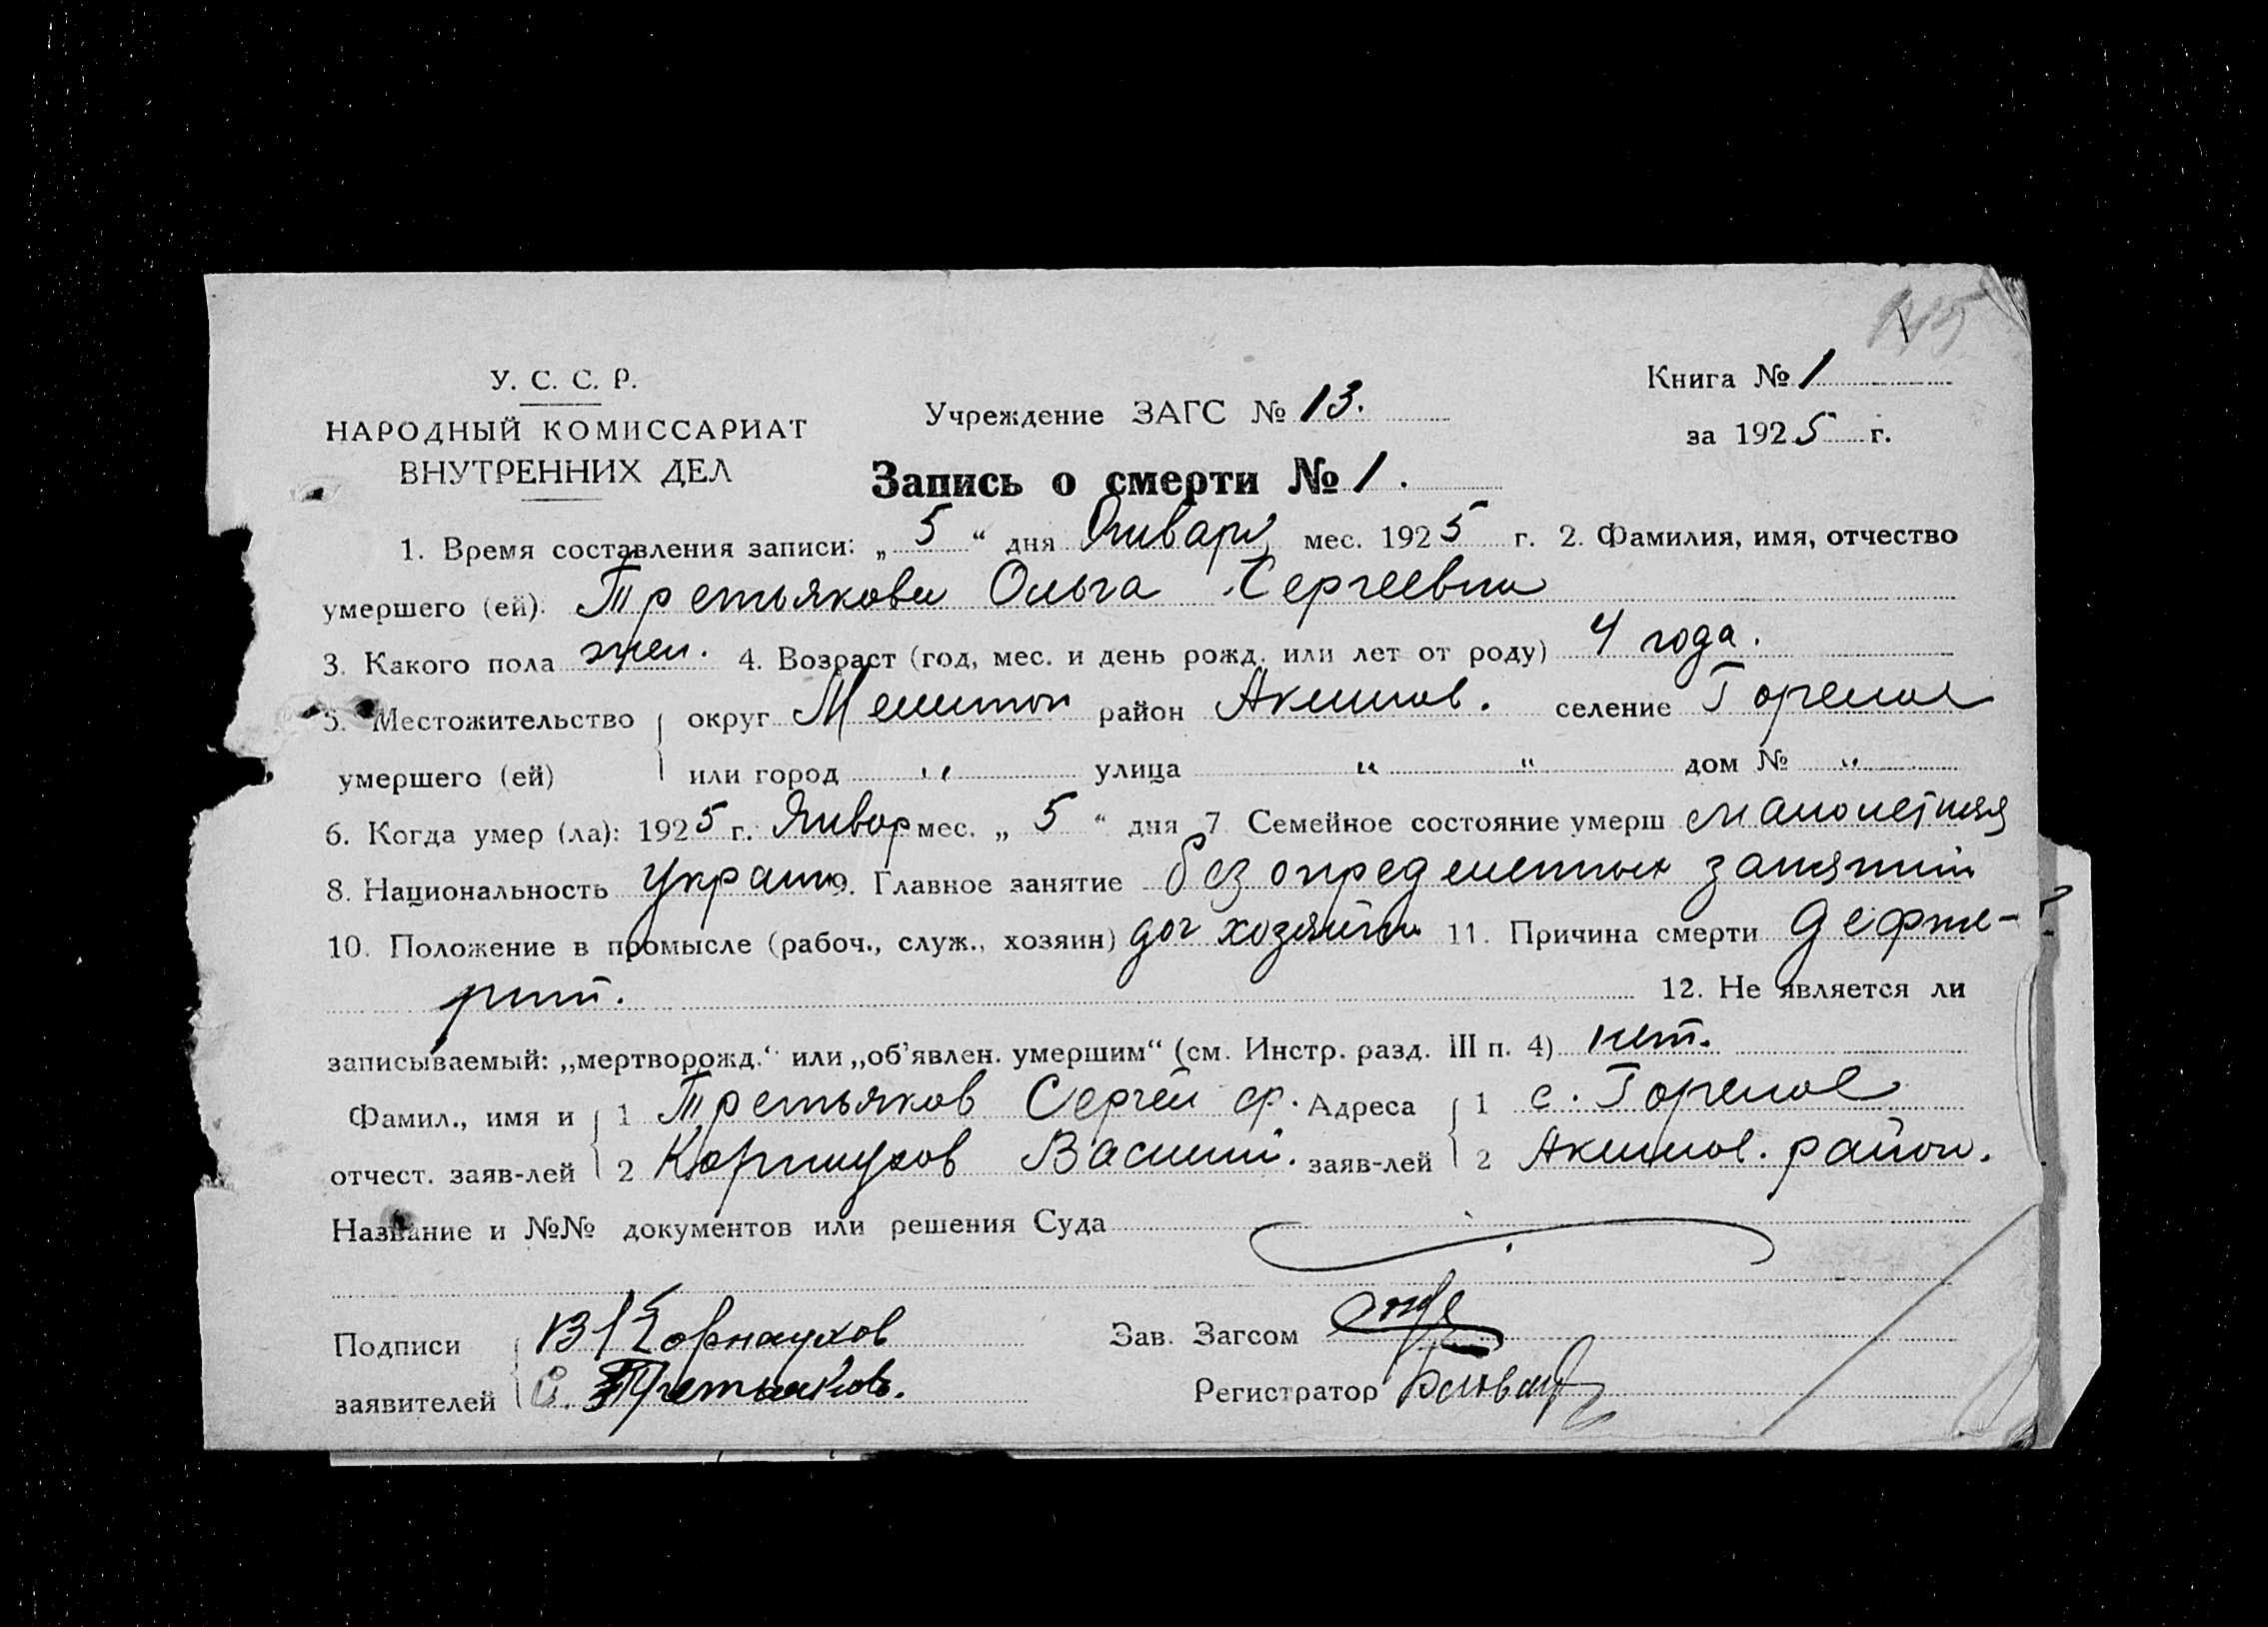 У. С. С. Р.
НАРОДНЫЙ КОМИССАРИАТ
ВНУТРЕННИХ ДЕЛ
Учреждение ЗАГС № 13.
Книга № 1
за 1925 г.
Запись о смерти № 1.
1. Время составления записи: „5“ дня Января мес. 1925 г. 2. Фамилия, имя, отчество
умершего (ей): Третьякова Ольга Сергеевна
3. Какого пола жен. 4. Возраст (год, мес. и день рожд. или лет от роду) 4 года.
5. Местожительство округ Мелитоп район Акимов. селение Горелое
умершего (ей) или город " улица " " дом № "
6. Когда умер (ла): 1925 г. Январ мес. „5“ дня 7 Семейное состояние умерш малолетняя
8. Национальность Украин 9. Главное занятие без определенных занятий
10. Положение в промысле (рабоч., служ., хозяин) доч хозяина 11. Причина смерти дефте-
рит. 12. Не является ли
записываемый: „мертворожд.“ или „об'явлен. умершим“ (см. Инстр. разд. III п. 4) нет.
Фамил., имя и 1 Третьяков Сергей Адреса 1 с. Горелое
отчест. заяв-лей 2 Карнаухов Васили. заяв-лей 2 Акимов. район.
Название и №№ документов или решения Суда
Подписи В Карнаухов Зав. Загсом
заявителей С. Третьяковъ. Регистратор